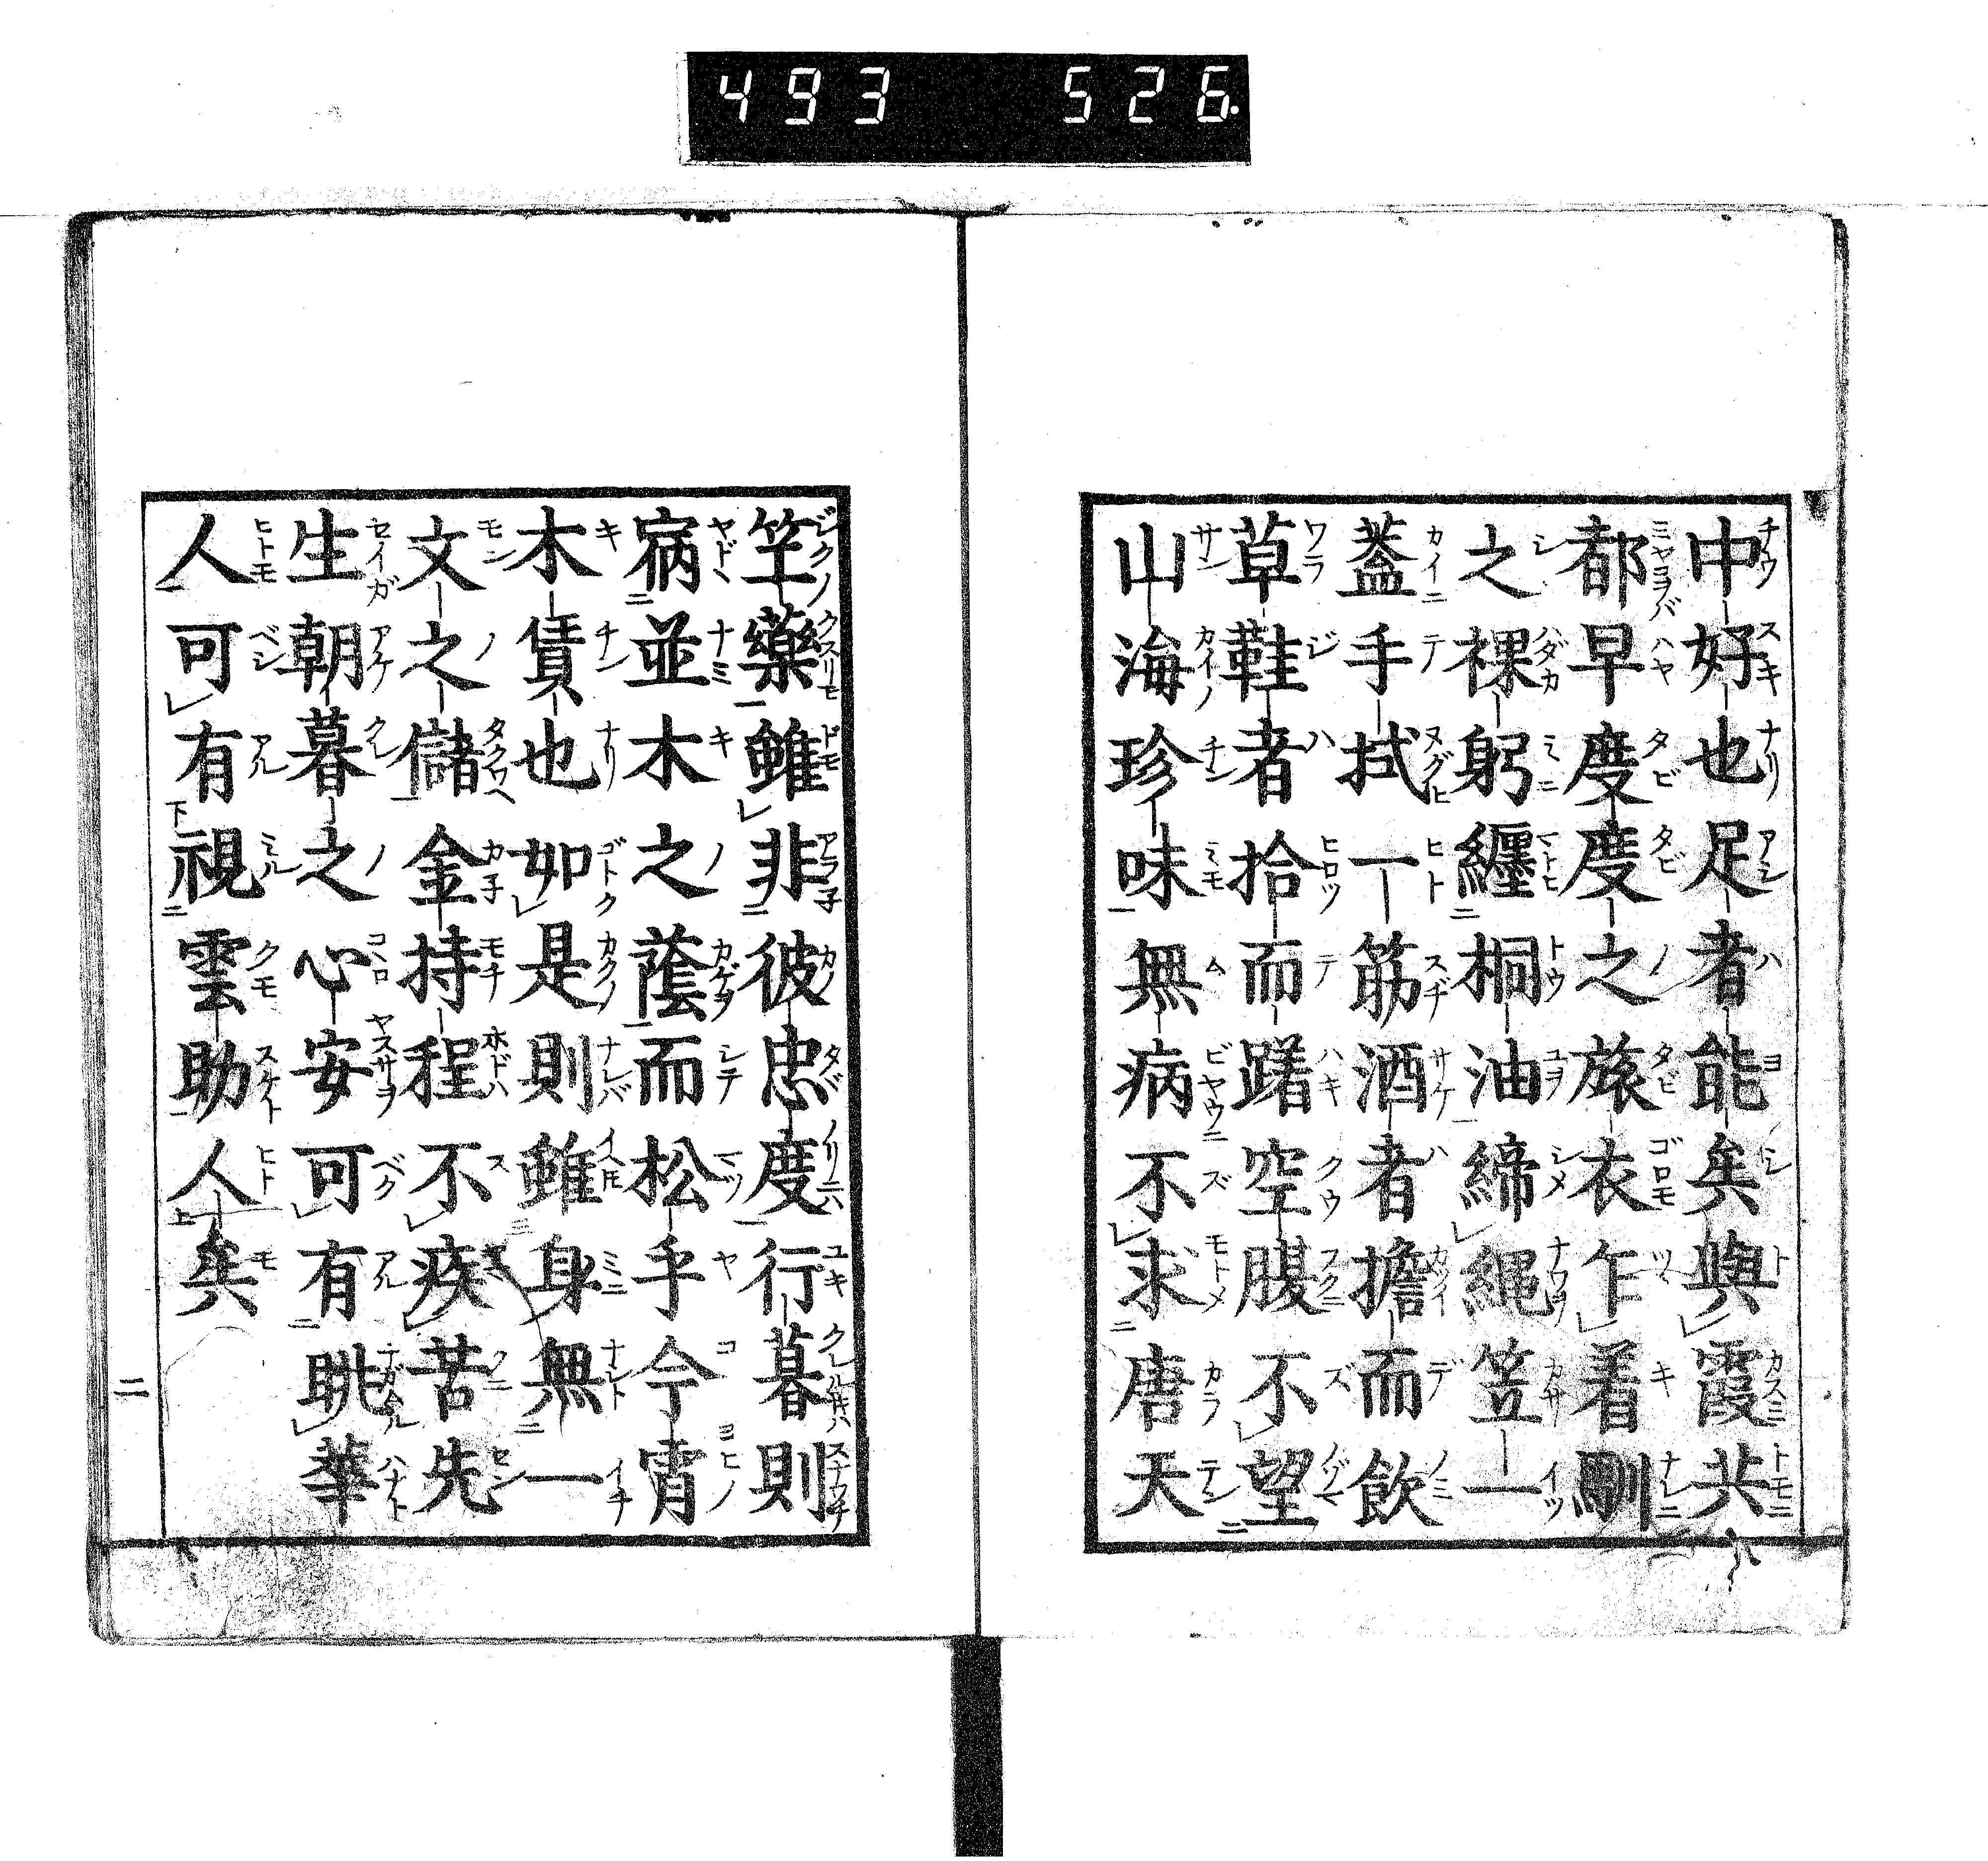 493 526.
中好也足者能矣與霞共
都早度度之旅衣乍着馴
之裸躬纏桐油締縄笠一
蓋手拭一筋酒者擔而飲
草鞋者拾而躇空腹不望
山海珍味無病不求唐天
竺藥雖非彼忠度行暮則
病並木之蔭而松乎今宵
木賃也如是則雖身無一
文之儲金持程不疾苦先
生朝暮之心安可有眺華
人可有視雲助人矣
二